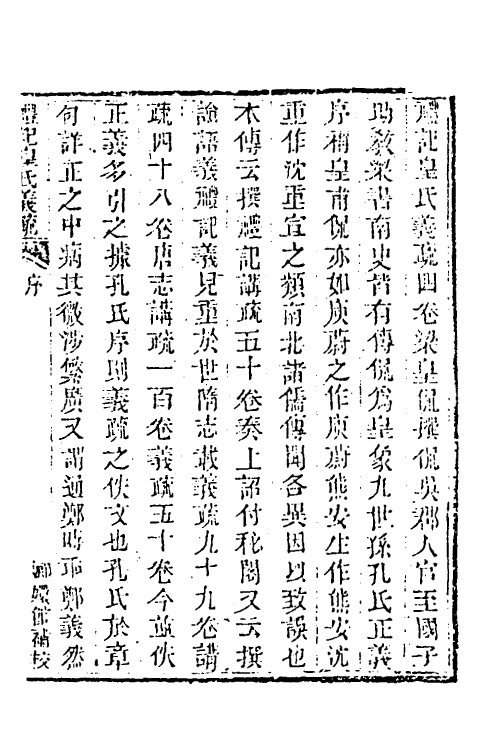 禮記皇氏義疏四卷梁皇侃撰侃吳郡人官至國子
助敎梁書南史皆有傳侃爲皇象九世孫孔氏正義
序稱皇甫侃亦如庾蔚之作庾蔚熊安生作熊安沈
重作沈重宣之類南北諸儒傳聞各異因以致誤也
本傳云撰禮記講疏五十卷奏上詔付秘閣又云撰
論語義禮記義見重於世隋志載義疏九十九卷講
疏四十八卷唐志講疏一百卷義疏五十卷今並佚
正義多引之據孔氏序則義疏之佚文也孔氏於章
句詳正之中病其微涉繁廣又謂過鄭時乖鄭義然
禮記皇氏義疏 序
嫏嬛館補校